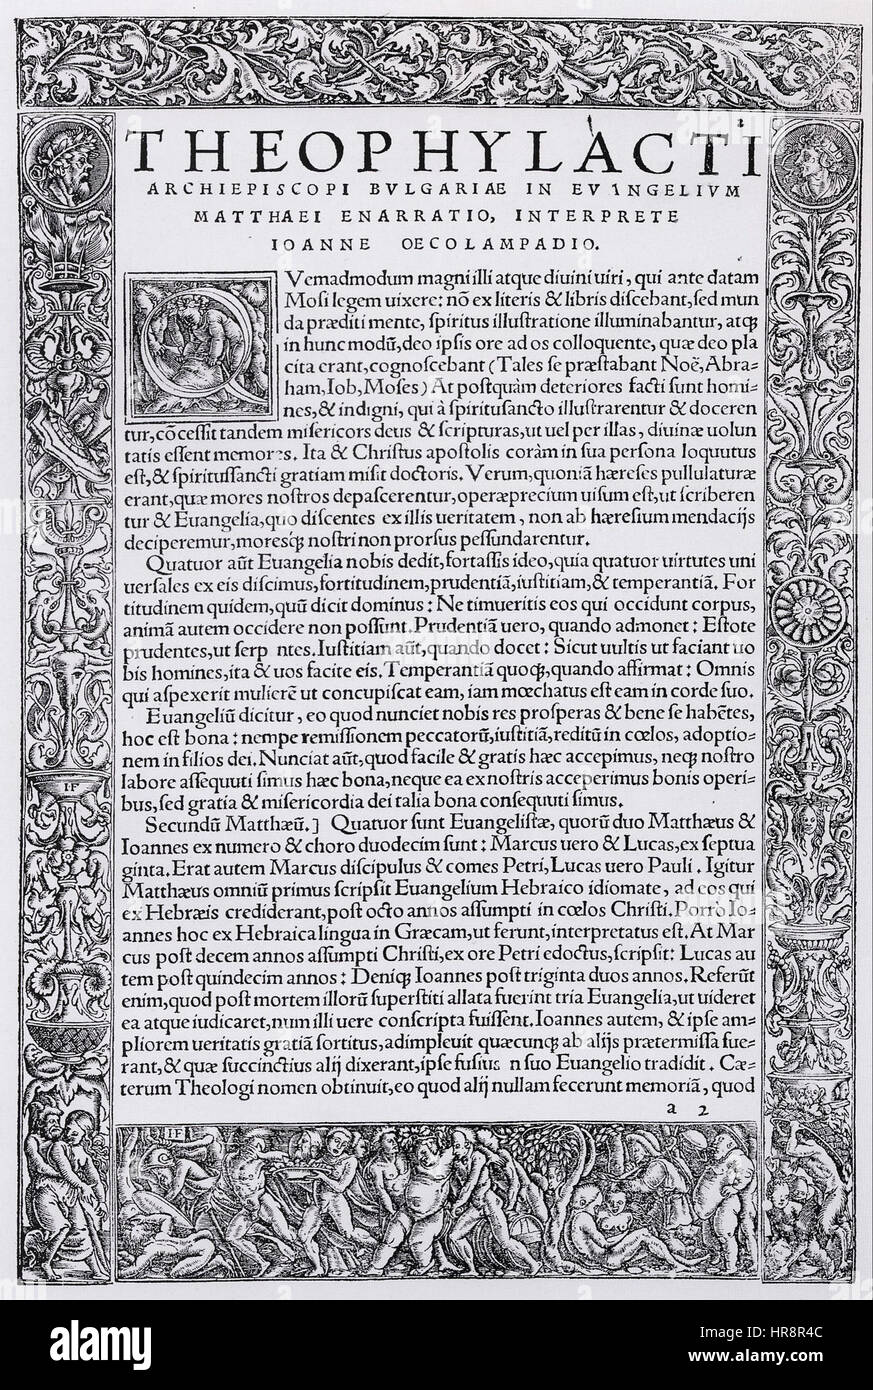 THEOPHYLACTI
ARCHIEPISCOPI BVLGARIAE IN EVANGELIVM
MATTHAEI ENARRATIO, INTERPRETE
IOANNE OECOLAMPADIO.
QVemadmodum magni illi atque diuini uiri, qui ante datam
Mosi legem uixere: nō ex literis & libris discebant, sed mun
da præditi mente, spiritus illustratione illuminabantur, atq
in hunc modū, deo ipsis ore ad os colloquente, quæ deo pla
cita erant, cognoscebant (Tales se præstabant Noë, Abra-
ham, Iob, Moses) At postquàm deteriores facti sunt homi-
nes, & indigni, qui à spiritusancto illustrarentur & doceren
tur, cōcessit tandem misericors deus & scripturas, ut uel per illas, diuinæ uolun
tatis essent memores. Ita & Christus apostolis coràm in sua persona loquutus
est, & spiritussancti gratiam misit doctoris. Verum, quoniā hæreses pullulaturæ
erant, quæ mores nostros depascerentur, operæprecium uisum est, ut scriberen
tur & Euangelia, quo discentes ex illis ueritatem, non ab hæresium mendacijs
deciperemur, moresq nostri non prorsus pessundarentur.
Quatuor aūt Euangelia nobis dedit, fortassis ideo, quia quatuor uirtutes uni
uersales ex eis discimus, fortitudinem, prudentiā, iustitiam, & temperantiā. For
titudinem quidem, quū dicit dominus: Ne timueritis eos qui occidunt corpus,
animā autem occidere non possunt. Prudentiā uero, quando admonet: Estote
prudentes, ut serp ntes. Iustitiam aūt, quando docet: Sicut uultis ut faciant uo
bis homines, ita & uos facite eis. Temperantiā quoq, quando affirmat: Omnis
qui aspexerit mulierē ut concupiscat eam, iam mœchatus est eam in corde suo.
Euangeliū dicitur, eo quod nunciet nobis res prosperas & bene se habētes,
hoc est bona: nempe remissionem peccatorū, iustitiā, reditū in cœlos, adoptio-
nem in filios dei. Nunciat aūt, quod facile & gratis hæc accepimus, neq nostro
labore assequuti simus hæc bona, neque ea ex nostris acceperimus bonis operi-
bus, sed gratia & misericordia dei talia bona consequuti simus.
Secundū Matthæū.] Quatuor sunt Euangelistæ, quorū duo Matthæus &
Ioannes ex numero & choro duodecim sunt: Marcus uero & Lucas, ex septua
ginta. Erat autem Marcus discipulus & comes Petri, Lucas uero Pauli. Igitur
Matthæus omniū primus scripsit Euangelium Hebraico idiomate, ad eos qui
ex Hebræis crediderant, post octo annos assumpti in cœlos Christi. Porro Io-
annes hoc ex Hebraica lingua in Græcam, ut ferunt, interpretatus est. At Mar
cus post decem annos assumpti Christi, ex ore Petri edoctus, scripsit: Lucas au
tem post quindecim annos: Deniq Ioannes post triginta duos annos. Referūt
enim, quod post mortem illorū superstiti allata fuerint tria Euangelia, ut uideret
ea atque iudicaret, num illi uere conscripta fuissent. Ioannes autem, & ipse am-
pliorem ueritatis gratiā sortitus, adimpleuit quæcunq ab alijs prætermissa fue-
rant, & quæ succinctius alij dixerant, ipse fusius n suo Euangelio tradidit. Cæ-
terum Theologi nomen obtinuit, eo quod alij nullam fecerunt memoriā, quod
a 2
IF
IF
IF
alamy
HR8R4C
www.alamy.com